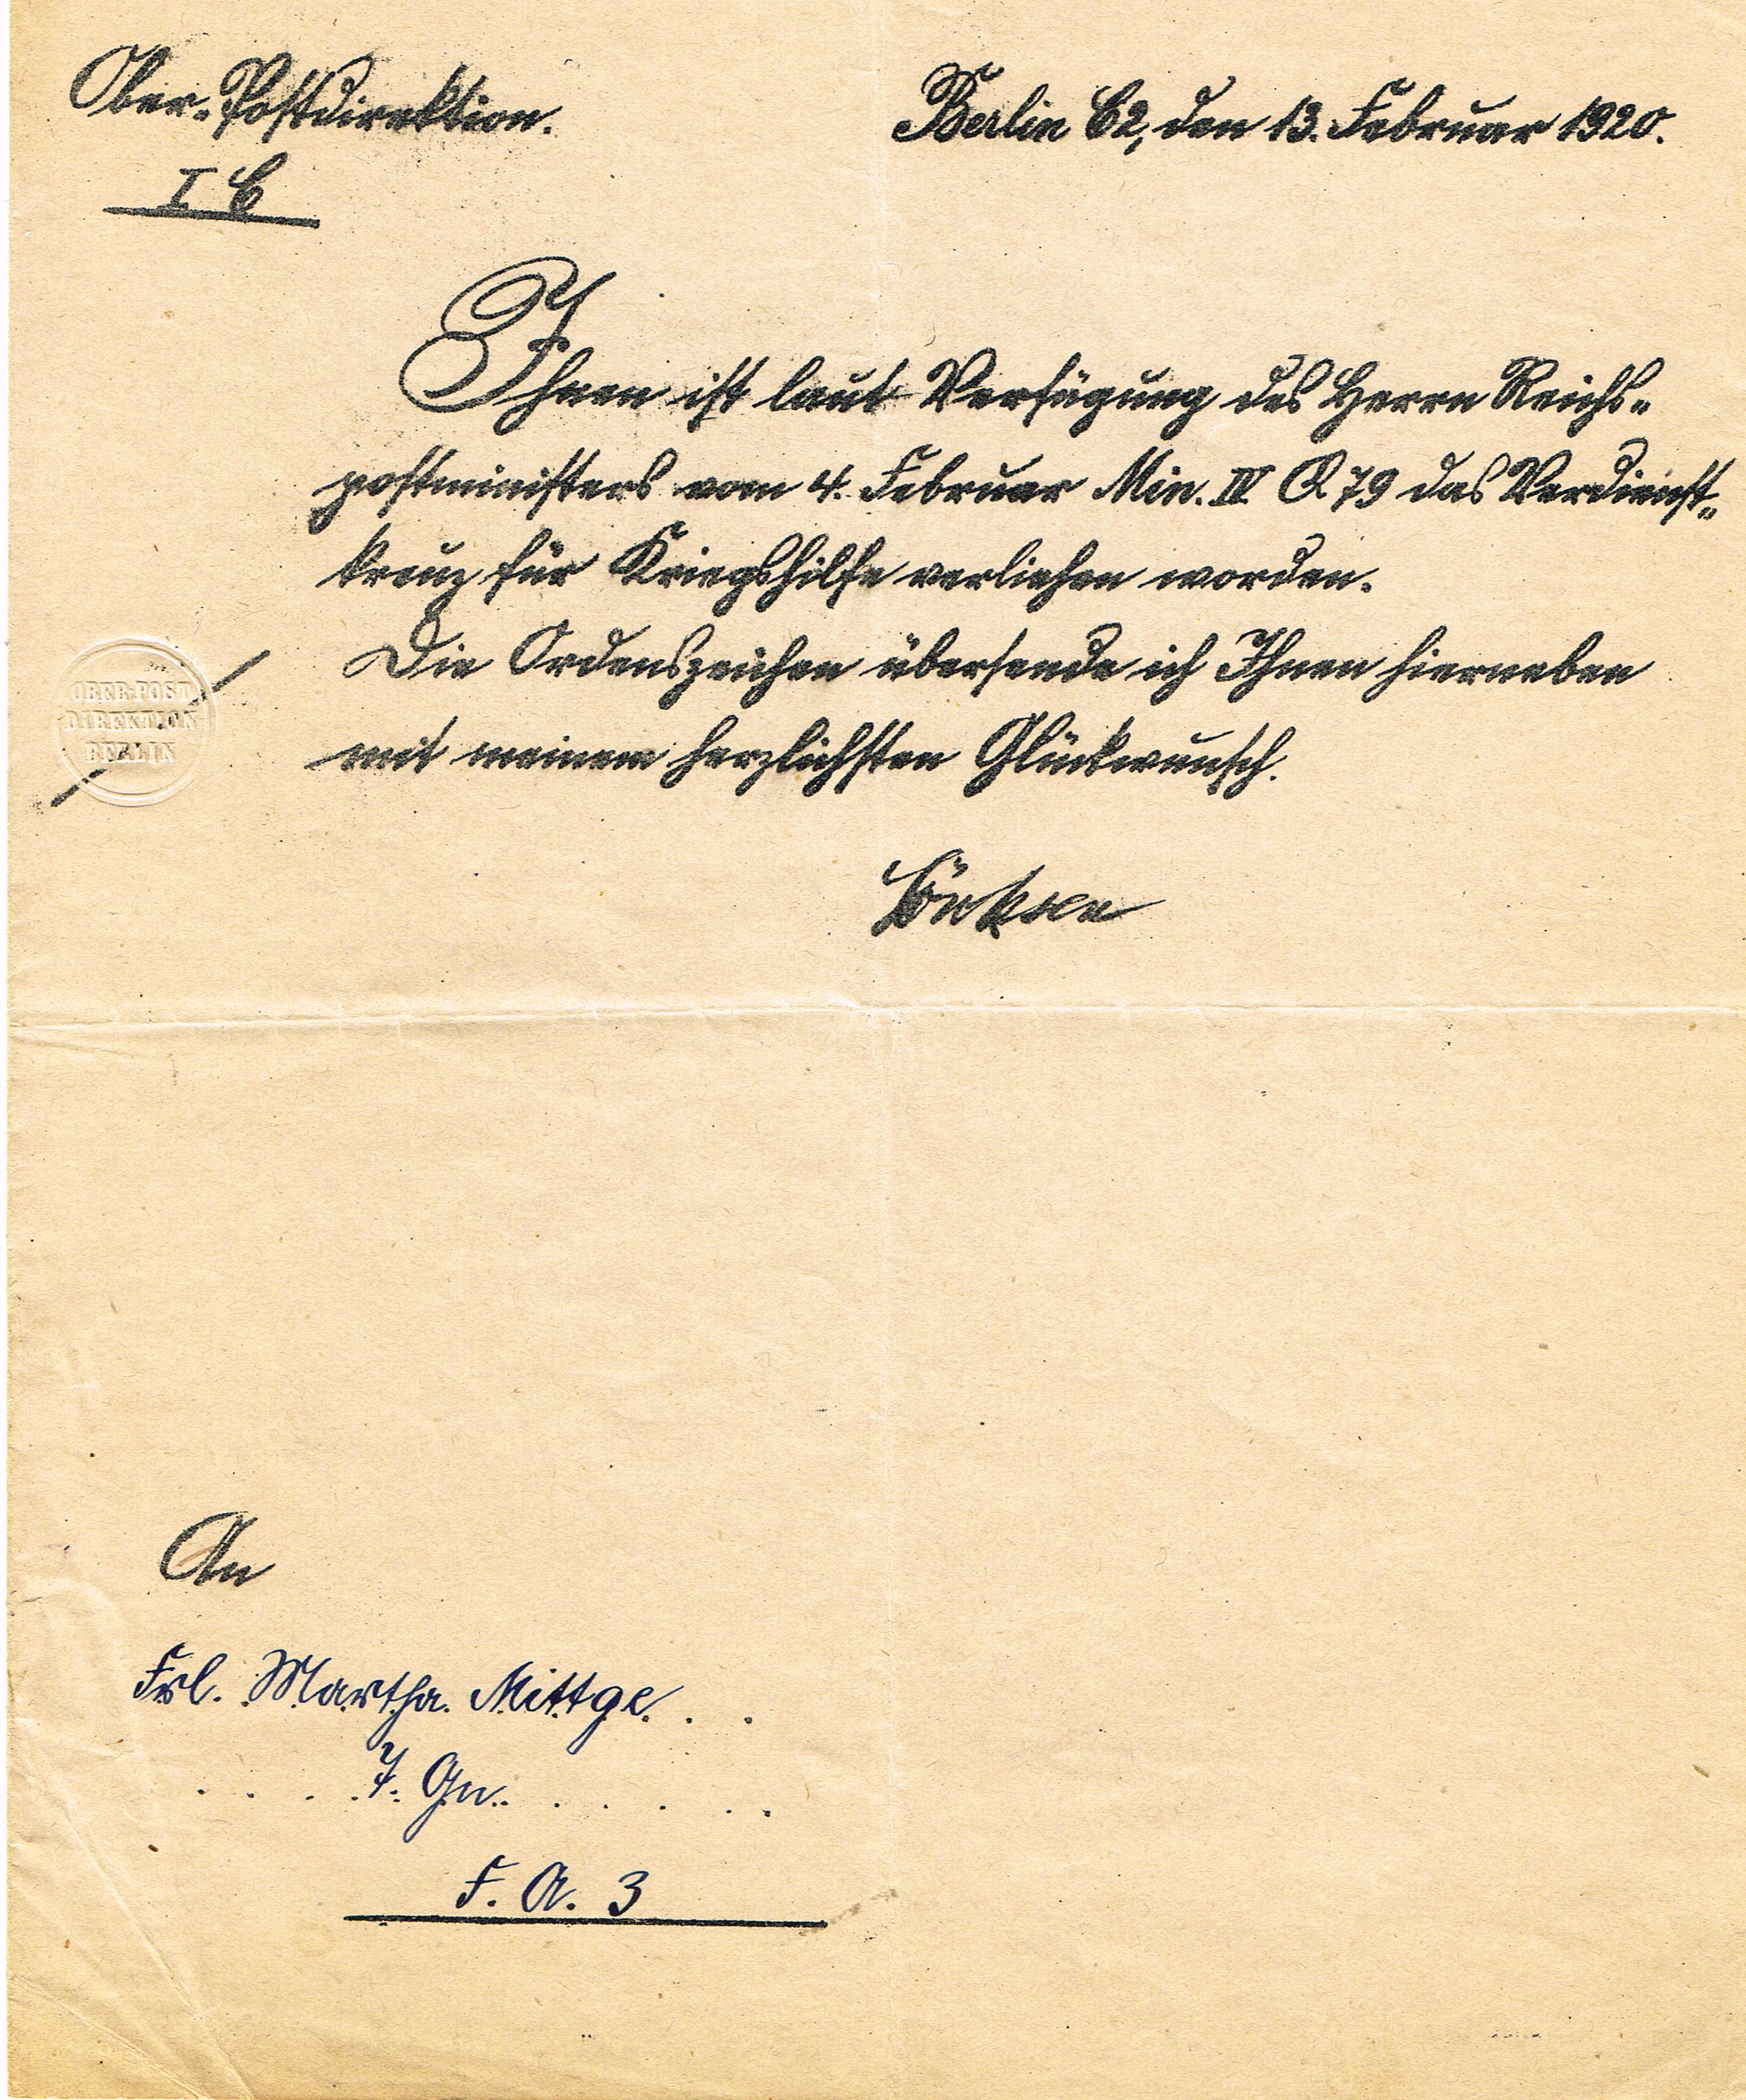 Ober-Postdirektion.
I C
Berlin C2, den 13. Februar 1920.
Ihnen ist laut Verfügung des Herrn Reichs-
postministers vom 4. Februar Min. IV Q 79 das Verdienst-
kreuz für Kriegshilfe verliehen worden.
Die Ordenszeichen übersende ich Ihnen hierneben
mit meinem herzlichsten Glückwunsch.
OBER-POST
DIREKTION
BERLIN
An
Frl. Martha Mittge
F. A. 3